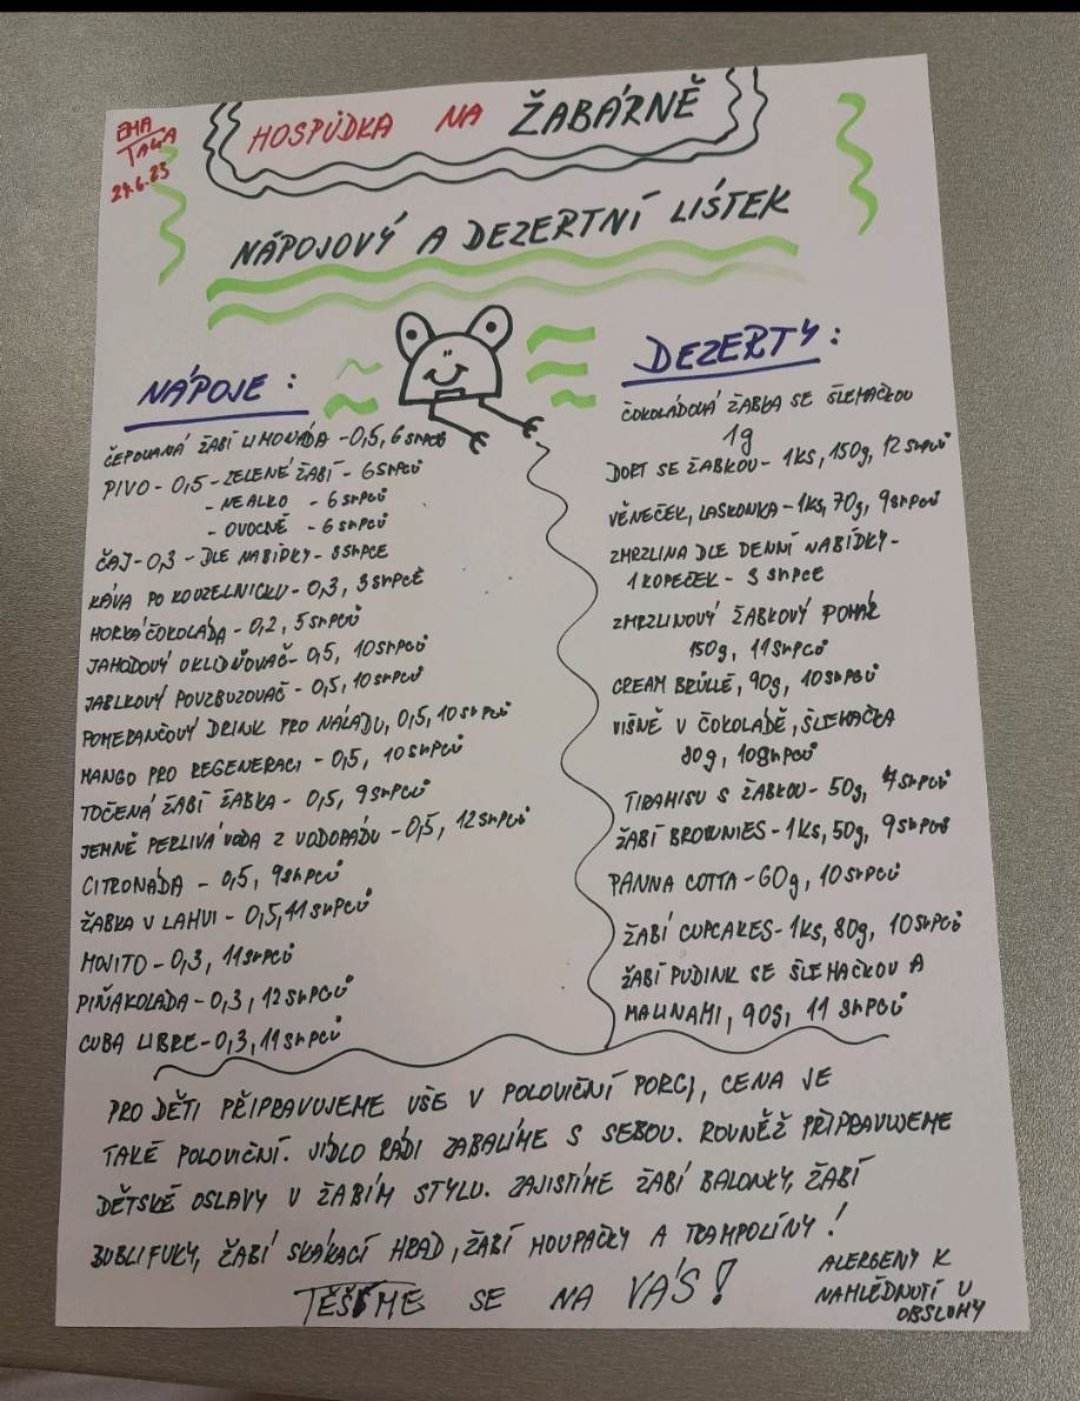 EMA
TAŤA
27.6.23
HOSPŮDKA NA ŽABÁRNĚ
NÁPOJOVÝ A DEZERTNÍ LÍSTEK
NÁPOJE:
ČEPOVANÁ ŽABÍ LIMONÁDA - 0,5, 6 SRPCŮ
PIVO - 0,5 - ZELENÉ ŽABÍ - 6 SRPCŮ
- NEALKO - 6 SRPCŮ
- OVOCNÉ - 6 SRPCŮ
ČAJ - 0,3 - DLE NABÍDKY - 3 SRPCE
KÁVA PO KOUZELNICKU - 0,3, 3 SRPCE
HORKÁ ČOKOLÁDA - 0,2, 5 SRPCŮ
JAHODOVÝ OKLIDŇOVAČ - 0,5, 10 SRPCŮ
JABLKOVÝ POVZBUZOVAČ - 0,5, 10 SRPCŮ
POMERANČOVÝ DRINK PRO NÁLADU, 0,5, 10 SRPCŮ
MANGO PRO REGENERACI - 0,5, 10 SRPCŮ
TOČENÁ ŽABÍ ŽABKA - 0,5, 9 SRPCŮ
JEMNĚ PERLIVÁ VODA Z VODOPÁDU - 0,5, 12 SRPCŮ
CITRONÁDA - 0,5, 9 SRPCŮ
ŽABKA V LAHVI - 0,5, 11 SRPCŮ
MOJITO - 0,3, 11 SRPCŮ
PIŇAKOLADA - 0,3, 12 SRPCŮ
CUBA LIBRE - 0,3, 11 SRPCŮ
DEZERTY:
ČOKOLÁDOVÁ ŽABKA SE ŠLEHAČKOU
1g
DORT SE ŽABKOU - 1KS, 150g, 12 SRPCŮ
VĚNEČEK, LASKONKA - 1KS, 70g, 9 SRPCŮ
ZMRZLINA DLE DENNÍ NABÍDKY -
1 KOPEČEK - 3 SRPCE
ZMRZLINOVÝ ŽABKOVÝ POHÁR
150g, 11 SRPCŮ
CREAM BRÜLLÉ, 90g, 10 SRPCŮ
VIŠNĚ V ČOKOLÁDĚ, ŠLEHAČKA
80g, 10 SRPCŮ
TIRAMISU S ŽABKOU - 50g, SRPCŮ
ŽABÍ BROWNIES - 1KS, 50g, 9 SRPCŮ
PANNA COTTA - 60g, 10 SRPCŮ
ŽABÍ CUPCAKES - 1KS, 80g, 10 SRPCŮ
ŽABÍ PUDINK SE ŠLEHAČKOU A
MALINAMI, 90g, 11 SRPCŮ
PRO DĚTI PŘIPRAVUJEME VŠE V POLOVIČNÍ PORCI, CENA JE
TAKÉ POLOVIČNÍ. JÍDLO RÁDI ZABALÍME S SEBOU. ROVNĚŽ PŘIPRAVUJEME
DĚTSKÉ OSLAVY V ŽABÍM STYLU. ZAJISTÍME ŽABÍ BALONKY, ŽABÍ
BUBLIFUKY, ŽABÍ SKÁKACÍ HRAD, ŽABÍ HOUPAČKY A TRAMPOLÍNY!
TĚŠÍME SE NA VÁS!
ALERGENY K
NAHLÉDNUTÍ U
OBSLUHY